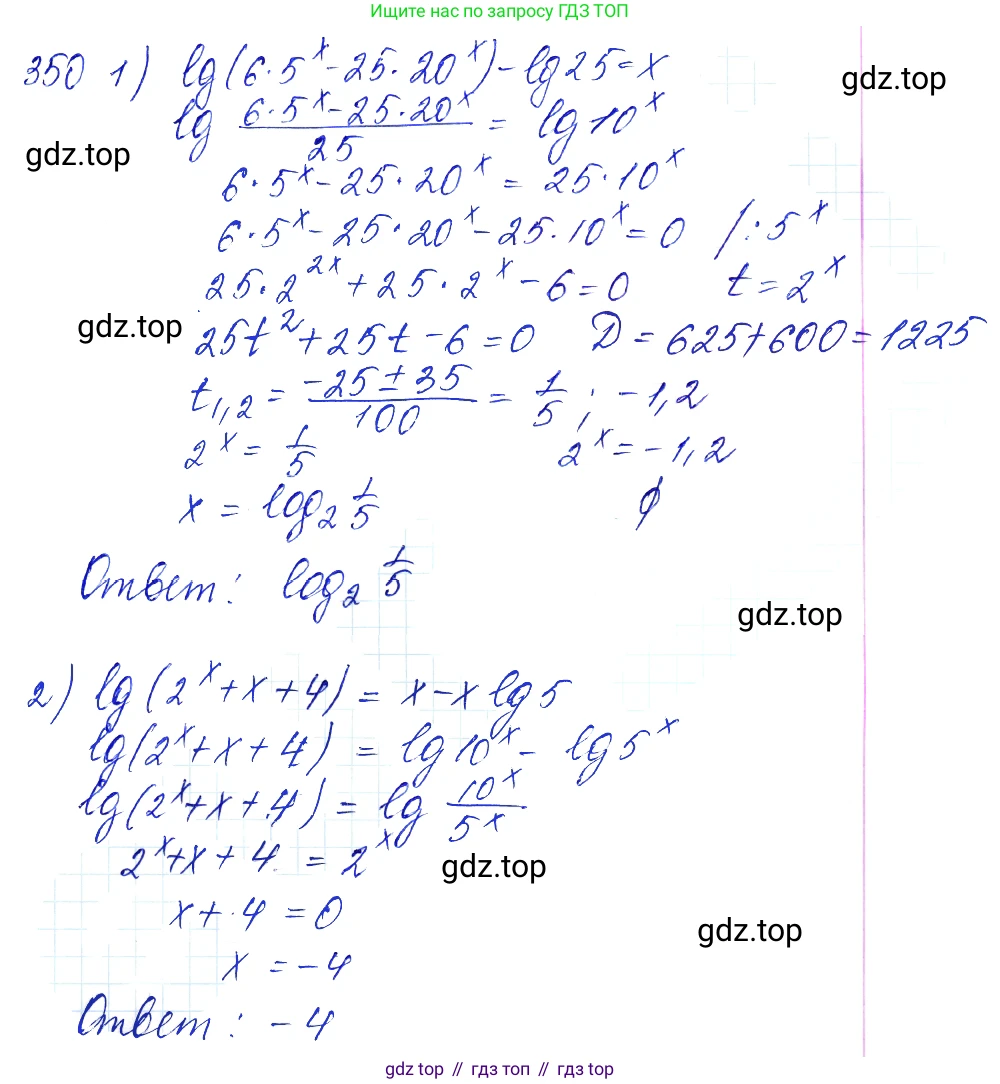 Ищите нас по запросу ГДЗ ТОП
350 1) lg(6·5^x - 25·20^x) - lg25 = x
gdz.top
lg (6·5^x - 25·20^x)/25 = lg10^x
gdz.top
6·5^x - 25·20^x = 25·10^x
6·5^x - 25·20^x - 25·10^x = 0 /:5^x
25·2^2x + 25·2^x - 6 = 0 t = 2^x
gdz.top
25t^2 + 25t - 6 = 0 D = 625+600 = 1225
t_1,2 = (-25 ± 35)/100 = 1/5 ; -1,2
2^x = 1/5 2^x = -1,2
x = log_2 1/5 ∅
Ответ: log_2 1/5
gdz.top
2) lg(2^x + x + 4) = x - x lg5
lg(2^x + x + 4) = lg10^x - lg5^x
lg(2^x + x + 4) = lg 10^x/5^x
2^x + x + 4 = 2^x
gdz.top
x + 4 = 0
gdz.top
x = -4
Ответ: -4
gdz.top // гдз.топ // гдз.top